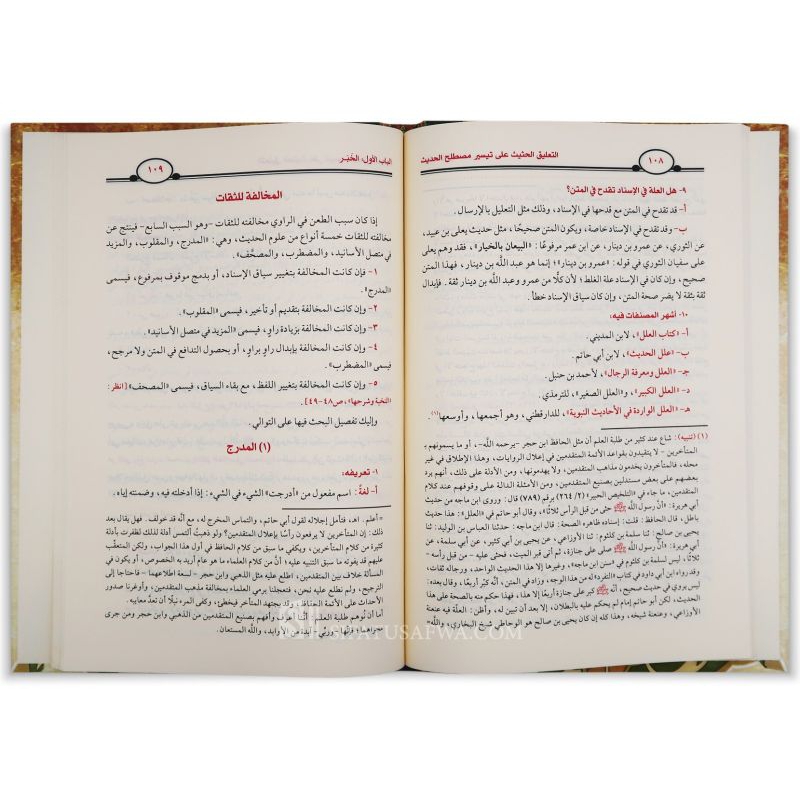 ١٠٨
التعليق الحثيث على تيسير مصطلح الحديث
٩- هل العلة في الإسناد تقدح في المتن؟
أ- قد تقدح في المتن مع قدحها في الإسناد، وذلك مثل التعليل بالإرسال.
ب- وقد تقدح في الإسناد خاصة، ويكون المتن صحيحًا، مثل حديث يعلى بن عبيد،
عن الثوري، عن عمرو بن دينار، عن ابن عمر مرفوعًا: «البيعان بالخيار»، فقد وهم يعلى
على سفيان الثوري في قوله: «عمرو بن دينار»؛ إنما هو عبد اللَّه بن دينار، فهذا المتن
صحيح، وإن كان في الإسناد علة الغلط؛ لأن كلًّا من عمرو وعبد اللَّه بن دينار ثقة. فإبدال
ثقة بثقة لا يضر صحة المتن، وإن كان سياق الإسناد خطأ.
١٠- أشهر المصنفات فيه:
أ- «كتاب العلل»، لابن المديني.
ب- «علل الحديث»، لابن أبي حاتم.
جـ- «العلل ومعرفة الرجال»، لأحمد بن حنبل.
د- «العلل الكبير»، و«العلل الصغير»، للترمذي.
هـ- «العلل الواردة في الأحاديث النبوية»، للدارقطني، وهو أجمعها، وأوسعها(١).
(١) (تنبيه): شاع عند كثير من طلبة العلم أن مثل الحافظ ابن حجر -يرحمه اللَّه-، أو ما يسمونهم «
المتأخرين - لا يتقيدون بقواعد الأئمة المتقدمين في إعلال الروايات، وهذا الإطلاق في غير
محله، فالمتأخرون يخدمون مذاهب المتقدمين، ولا يهدمونها، ومن الأدلة على ذلك، أنهم يرد
بعضهم على بعض مستدلين بصنيع المتقدمين، ومن الأمثلة الدالة على وقوفهم عند كلام
المتقدمين، ما جاء في «التلخيص الحبير» (٢/ ٢٦٤) برقم (٧٨٩) قال: وروى ابن ماجه من حديث
أبي هريرة: «أنَّ رسول اللَّه ﷺ حثى من قبل الرأس ثلاثًا»، وقال أبو حاتم في «العلل»: هذا حديث
باطل، قال الحافظ: قلت: إسناده ظاهره الصحة: قال ابن ماجه: حدثنا العباس بن الوليد: ثنا
يحيى بن صالح: ثنا سلمة بن كلثوم: ثنا الأوزاعي، عن يحيى بن أبي كثير، عن أبي سلمة، عن
أبي هريرة: «أنَّ رسول اللَّه ﷺ صلى على جنازة، ثم أتى قبر الميت، فحثى عليه - من قبل رأسه -
ثلاثًا»، ليس لسلمة بن كلثوم في «سنن ابن ماجه»، وغيرها إلا هذا الحديث الواحد، ورجاله ثقات،
وقد رواه ابن أبي داود في كتاب «التفرد» له من هذا الوجه، وزاد في المتن، أنَّه كبر أربعًا، وقال بعده:
ليس يروى في حديث صحيح، أنَّه ﷺ كبر على جنازة أربعًا إلا هذا، فهذا حكم منه بالصحة على هذا
الحديث، لكن أبو حاتم إمام لم يحكم عليه بالبطلان، إلا بعد أن تبين له، وأظن: العلَّة فيه عنعنة
الأوزاعي، وعنعنة شيخه، وهذا كله إن كان يحيى بن صالح هو الوحاظي شيخ البخاري، واللَّه «
١٠٩
الباب الأول: الخَبَر
المخالفة للثقات
إذا كان سبب الطعن في الراوي مخالفته للثقات -وهو السبب السابع- فينتج عن
مخالفته للثقات خمسة أنواع من علوم الحديث، وهي: «المدرج، والمقلوب، والمزيد
في متصل الأسانيد، والمضطرب، والمصحَّف».
١- فإن كانت المخالفة بتغيير سياق الإسناد، أو بدمج موقوف بمرفوع، فيسمى
«المدرج».
٢- وإن كانت المخالفة بتقديم أو تأخير، فيسمى «المقلوب».
٣- وإن كانت المخالفة بزيادة راوٍ، فيسمى «المزيد في متصل الأسانيد».
٤- وإن كانت المخالفة بإبدال راوٍ براوٍ، أو بحصول التدافع في المتن ولا مرجح،
فيسمى «المضطرب».
٥- وإن كانت المخالفة بتغيير اللفظ، مع بقاء السياق، فيسمى «المصحف» [انظر:
«النخبة وشرحها»، ص٤٨-٤٩].
وإليك تفصيل البحث فيها على التوالي.
(١) المدرج
١- تعريفه:
أ- لغةً: اسم مفعول من «أدرجت» الشيء في الشيء: إذا أدخلته فيه، وضمنته إياه.
= أعلم. اهـ. فتأمل إجلاله لقول أبي حاتم، والتماس المخرج له، مع أنَّه قد خولف. فهل يقال بعد
ذلك: إن المتأخرين لا يرفعون رأسًا بإعلال المتقدمين؟ ولو ذهبتُ ألتمس أدلة لذلك لظفرت بأدلة
كثيرة من كلام المتأخرين، ويكفي ما سبق من كلام الحافظ في أول هذا الجواب، ولكن المتعقِّب
عليهم قد يفوته ما سبق التنبيه عليه؛ أنَّ من كلام العلماء ما هو عام أريد به الخصوص، أو يكون في
المسألة خلاف بين المتقدمين، اطلع عليه مثل الذهبي وابن حجر - لسعة اطلاعهما - فاحتاجا إلى
الترجيح، ولم نطلع عليه نحن، فتعجلنا برمي العلماء بمخالفة مذهب المتقدمين، وأوغرنا صدور
الأحداث على الأئمة النقاد، وقد يجتهد المتأخر فيخطئ، وكفى المرء نبلًا أن تعدَّ معايبه.
أما أن نُوهم طلبة العلم
وأفهم بصنيع المتقدمين من الذهبي وابن حجر ومن جرى
مجراهما؛ فإنها
واللَّه المستعان.
SIFATUSAFWA.COM